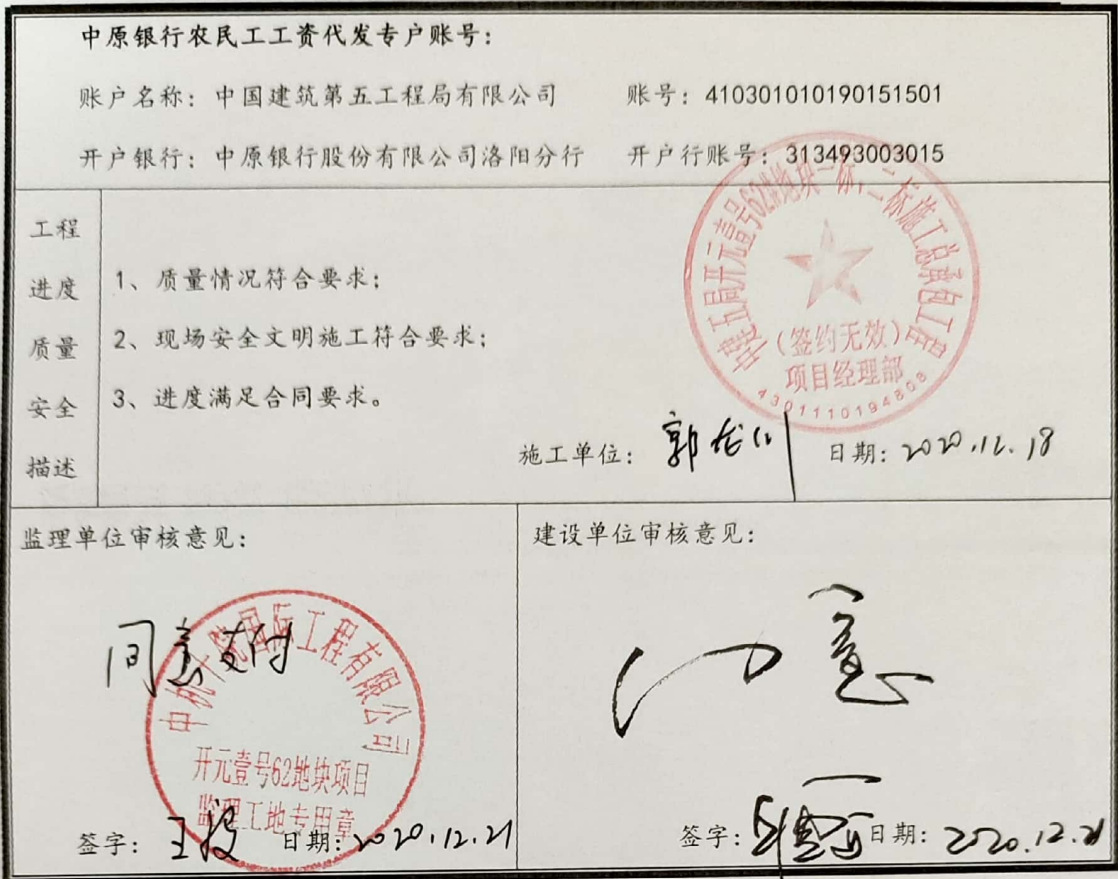 中原银行农民工工资代发专户账号:
账户名称: 中国建筑第五工程局有限公司 账号: 410301010190151501
开户银行: 中原银行股份有限公司洛阳分行 开户行账号: 313493003015
工程
进度
质量
安全
描述
1、质量情况符合要求;
2、现场安全文明施工符合要求;
3、进度满足合同要求。
中建五局开元壹号62#地块一标、二标施工总承包工程
(签约无效)
项目经理部
4301110194808
施工单位: 郭龙川 日期: 2020.12.18
监理单位审核意见:
同意支付
中机十院国际工程有限公司
开元壹号62地块项目
监理工地专用章
签字: 王 日期: 2020.12.21
建设单位审核意见:
同意
签字: 日期: 2020.12.21